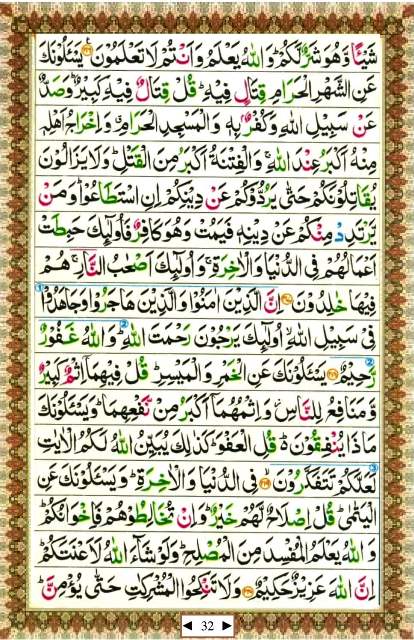 شَيْـًٔا وَّهُوَ شَرٌّ لَّكُمْ ؕ وَاللّٰهُ يَعْلَمُ وَاَنْتُمْ لَا تَعْلَمُوْنَ ۟ يَسْـَٔلُوْنَكَ
عَنِ الشَّهْرِ الْحَرَامِ قِتَالٍ فِيْهِ ؕ قُلْ قِتَالٌ فِيْهِ كَبِيْرٌ ؕ وَصَدٌّ
عَنْ سَبِيْلِ اللّٰهِ وَكُفْرٌۢ بِهٖ وَالْمَسْجِدِ الْحَرَامِ ۗ وَاِخْرَاجُ اَهْلِهٖ
مِنْهُ اَكْبَرُ عِنْدَ اللّٰهِ ۚ وَالْفِتْنَةُ اَكْبَرُ مِنَ الْقَتْلِ ؕ وَلَا يَزَالُوْنَ
يُقَاتِلُوْنَكُمْ حَتّٰى يَرُدُّوْكُمْ عَنْ دِيْنِكُمْ اِنِ اسْتَطَاعُوْا ؕ وَمَنْ
يَّرْتَدِدْ مِنْكُمْ عَنْ دِيْنِهٖ فَيَمُتْ وَهُوَ كَافِرٌ فَاُولٰٓئِكَ حَبِطَتْ
اَعْمَالُهُمْ فِى الدُّنْيَا وَالْاٰخِرَةِ ۚ وَاُولٰٓئِكَ اَصْحٰبُ النَّارِ ۚ هُمْ
فِيْهَا خٰلِدُوْنَ ۟ اِنَّ الَّذِيْنَ اٰمَنُوْا وَالَّذِيْنَ هَاجَرُوْا وَجَاهَدُوْا
فِىْ سَبِيْلِ اللّٰهِ ۙ اُولٰٓئِكَ يَرْجُوْنَ رَحْمَتَ اللّٰهِ ؕ وَاللّٰهُ غَفُوْرٌ
رَّحِيْمٌ ۟ يَسْـَٔلُوْنَكَ عَنِ الْخَمْرِ وَالْمَيْسِرِ ؕ قُلْ فِيْهِمَاۤ اِثْمٌ كَبِيْرٌ
وَّمَنَافِعُ لِلنَّاسِ ؗ وَاِثْمُهُمَاۤ اَكْبَرُ مِنْ نَّفْعِهِمَا ؕ وَيَسْـَٔلُوْنَكَ
مَاذَا يُنْفِقُوْنَ ؕ قُلِ الْعَفْوَ ؕ كَذٰلِكَ يُبَيِّنُ اللّٰهُ لَكُمُ الْاٰيٰتِ
لَعَلَّكُمْ تَتَفَكَّرُوْنَ ۟ فِى الدُّنْيَا وَالْاٰخِرَةِ ؕ وَيَسْـَٔلُوْنَكَ عَنِ
الْيَتٰمٰى ؕ قُلْ اِصْلَاحٌ لَّهُمْ خَيْرٌ ؕ وَاِنْ تُخَالِطُوْهُمْ فَاِخْوَانُكُمْ ؕ
وَاللّٰهُ يَعْلَمُ الْمُفْسِدَ مِنَ الْمُصْلِحِ ؕ وَلَوْ شَآءَ اللّٰهُ لَاَعْنَتَكُمْ ؕ
اِنَّ اللّٰهَ عَزِيْزٌ حَكِيْمٌ ۟ وَلَا تَنْكِحُوا الْمُشْرِكٰتِ حَتّٰى يُؤْمِنَّ ؕ
32